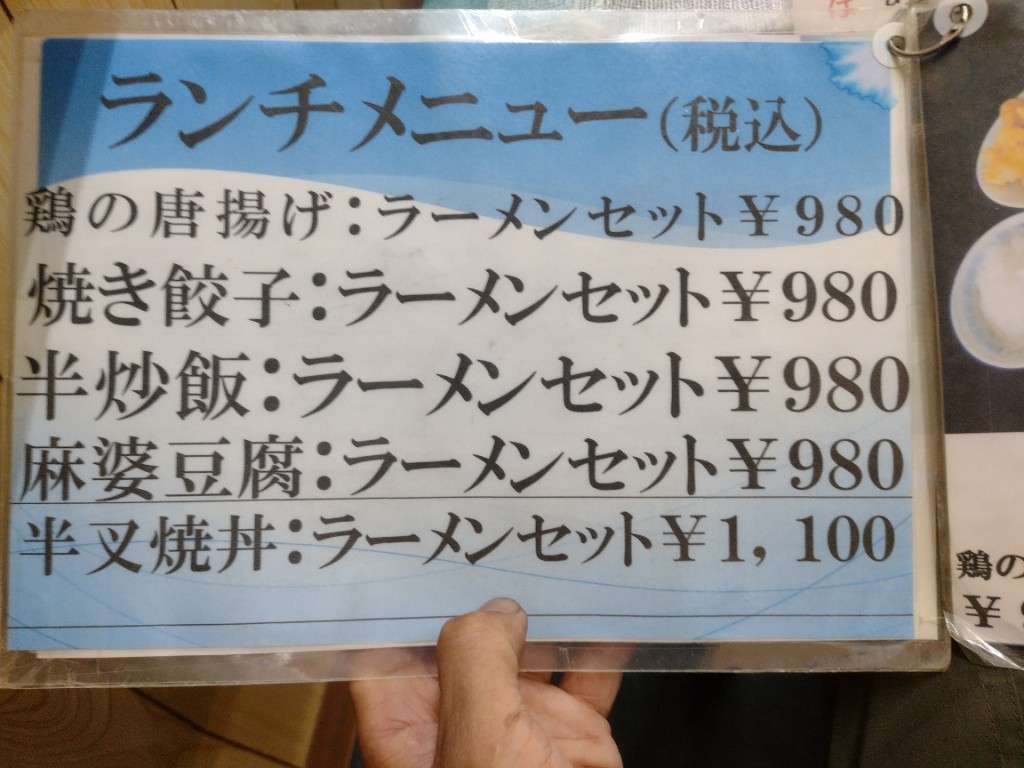 ランチメニュー(税込)
鶏の唐揚げ:ラーメンセット¥980
焼き餃子:ラーメンセット¥980
半炒飯:ラーメンセット¥980
麻婆豆腐:ラーメンセット¥980
半叉焼丼:ラーメンセット¥1,100
鶏の
¥